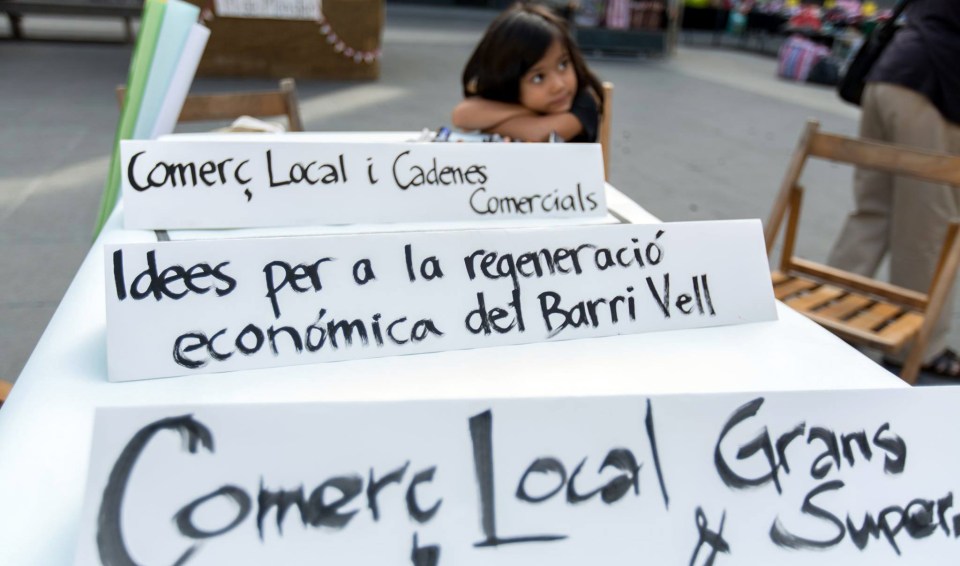 Comerç Local i Cadenes
Comercials
Idees per a la regeneració
económica del Barri Vell
Comerç Local Grans
& Super